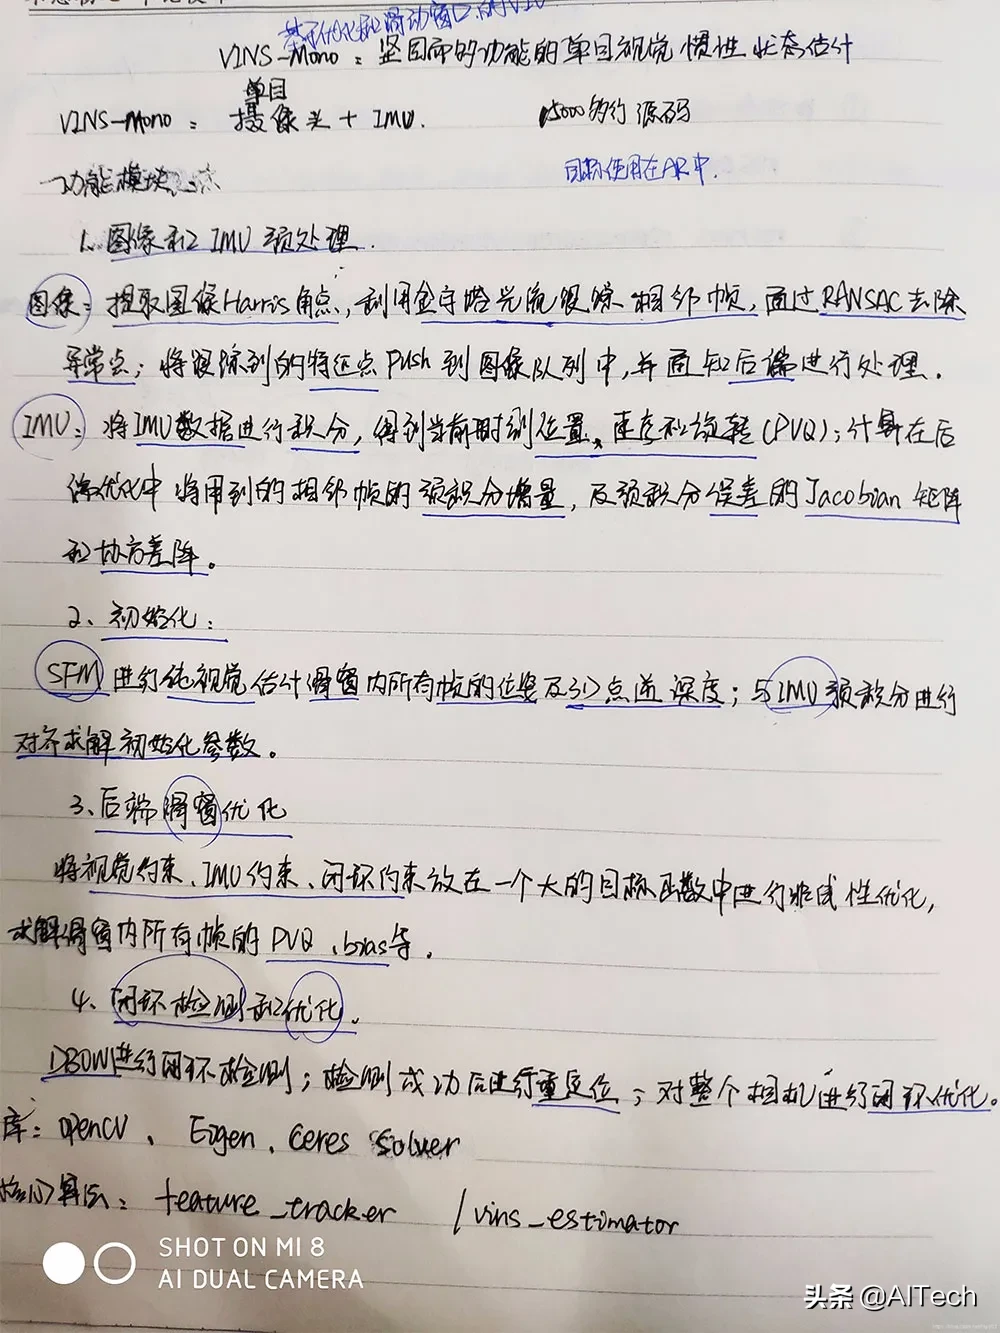 基于优化和滑动窗口的VIO
VINS-Mono：坚固而多功能的单目视觉惯性状态估计
单目
VINS-Mono：摄像头＋IMU.
15000多行源码
目标使用在AR中.
功能模块：
1、图像和IMU预处理.
图像：提取图像Harris角点,利用金字塔光流跟踪相邻帧,通过RANSAC去除
异常点；将跟踪到的特征点Push到图像队列中,并通知后端进行处理.
IMU：将IMU数据进行积分,得到当前时刻位置、速度和旋转(PVQ)；计算在后
端优化中将用到的相邻帧的预积分增量,及预积分误差的Jacobian矩阵
和协方差阵。
2、初始化：
SFM进行纯视觉估计滑窗内所有帧的位姿及3D点逆深度；与IMU预积分进行
对齐求解初始化参数。
3、后端滑窗优化
将视觉约束、IMU约束、闭环约束放在一个大的目标函数中进行非线性优化,
求解滑窗内所有帧的PVQ、bias等.
4、闭环检测和优化.
DBOW进行闭环检测；检测成功后进行重定位；对整个相机进行闭环优化。
库：OpenCV、Eigen、Ceres Solver
核心算法：feature_tracker / vins_estimator
SHOT ON MI 8
AI DUAL CAMERA
头条 @AITech